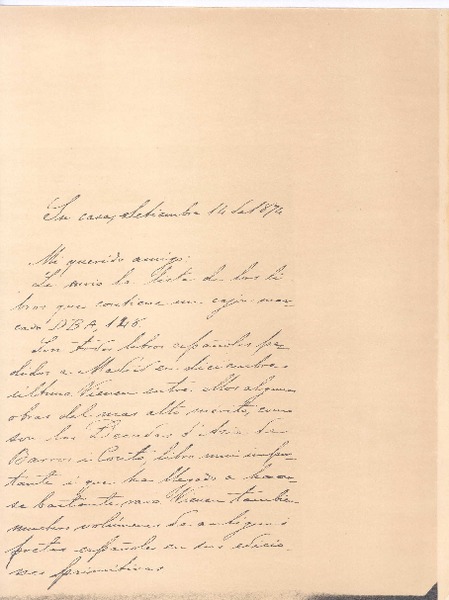 Su casa, Setiembre 14 de 1874
Mi querido amigo:
Le envio la lista de los li-
bros que contiene un cajon mar-
cado DBA, 128.
Son todos libros españoles pe-
didos a Madrid en diciembre
último. Vienen entre ellos algunas
obras del mas alto mérito, como
son las Decadas d'Asia de
Barros i Couto, libro mui impor-
tante i que ha llegado a hacer-
se bastante raro. Vienen tambien
muchos volúmenes de antiguos
poetas españoles en sus edicio-
nes primitivas